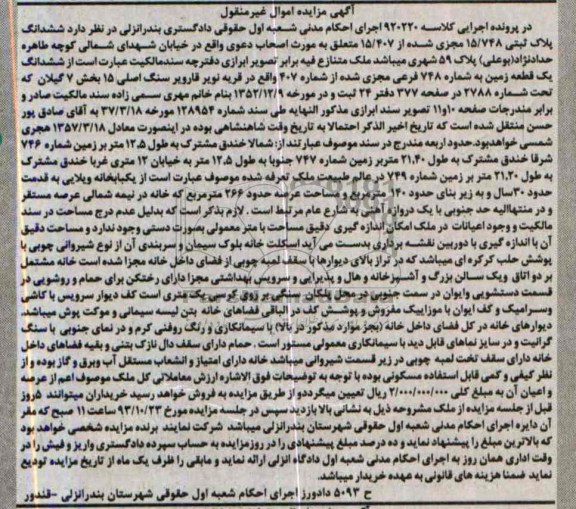 آگهی مزایده اموال غیرمنقول
در پرونده اجرایی کلاسه ۹۲۰۲۲۰ اجرای احکام مدنی شعبه اول حقوقی دادگستری بندرانزلی در نظر دارد ششدانگ
پلاک ثبتی ۱۵/۷۴۸ مجزی شده از ۱۵/۴۰۷ متعلق به مورث اصحاب دعوی واقع در خیابان شهدای شمالی کوچه طاهره
حدادنژاد(بوعلی) پلاک ۵۹ شهری میباشد ملک متنازع فیه برابر تصویر ابرازی دفترچه سندمالکیت عبارت است از ششدانگ
یک قطعه زمین به شماره ۷۴۸ فرعی مجزی شده از شماره ۴۰۷ واقع در قریه نویر قاروبر سنگ اصلی ۱۵ بخش ۷ گیلان که
تحت شماره ۲۷۸۸ در صفحه ۳۷۷ دفتر ۲۴ ثبت و در مورخه ۱۳۵۲/۱۲/۹ بنام خانم مهری سمعی زاده سند مالکیت صادر و
برابر مندرجات صفحه ۱۰و۱۱ تصویر سند ابرازی مذکور النهایه طی سند شماره ۱۲۸۹۵۴ مورخه ۳۷/۳/۱۸ به آقای صادق پور
حسن منتقل شده است که تاریخ اخیر الذکر احتمالا به تاریخ وقت شاهنشاهی بوده در اینصورت معادل ۱۳۵۷/۳/۱۸ هجری
شمسی خواهدبود.حدود اربعه مندرج در سند موصوف عبارتند از: شمالا خندق مشترک به طول ۱۲.۵ متر بر زمین شماره ۷۴۶
شرقا خندق مشترک به طول ۲۱.۴۰ متربر زمین شماره ۷۴۷ جنوبا به طول ۱۲.۵ متر به خیابان ۱۲ متری غربا خندق مشترک
به طول ۲۱.۲۰ متر بر زمین شماره ۷۴۹ در عالم طبیعت ملک تعرفه شده موصوف عبارت است از یکبابخانه ویلایی به قدمت
حدود ۳۰سال و به زیر بنای حدود ۱۴۰ مساحت عرصه حدود ۲۶۶ مترمربع که خانه در نیمه شمالی عرصه مستقر
و در منتهاالیه حد جنوبی با یک درواز به شارع عام مرتبط است . لازم بذکر است که بدلیل عدم درج مساحت در سند
مالکیت و وجود اعیانات در ملک امکان اندازه گیری دقیق مساحت با متر معمولی بصورت دستی وجود ندارد و مساحت دقیق
آن با اندازه گیری با دوربین نقشه برداری بدست می آید اسکلت خانه بلوک سیمان و سربندی آن از نوع شیروانی چوبی با
پوشش حلب کرکره ای میباشد که در تراز بالای دیوارها با سقف لمبه چوبی از فضای داخل خانه مجزا شده است خانه مشتمل
بر دو اتاق ویک سالن بزرگ و آشپزخانه و هال و پذیرایی و سرویس بهداشتی مجزا دارای رختکن برای حمام و روشویی در
قسمت دستشویی وایوان در سمت جنوبی در محل پلکان سنگی بر روی کرسی یک متری است کف دیوار سرویس با کاشی
وسرامیک و کف ایوان با موزاییک مفروش و پوشش کف در الباقی فضاهای خانه بتن لیسه سیمانی و موکت پوش میباشد.
دیوارهای خانه در کل فضای داخل خانه (بجز موارد مذکور در بالا) با سیمانکاری و رنگ روغنی کرم و در نمای جنوبی با سنگ
گرانیت و در سایر نماهای قابل دید با سیمانکاری معمولی مستور است . حمام دارای سقف دال نازک بتنی و بقیه فضاهای داخل
خانه دارای سقف تخت لمبه چوبی در زیر قسمت شیروانی میباشد خانه دارای امتیاز و انشعاب مستقل آب وبرق و گاز بوده و از
نظر کیفی و کمی قابل استفاده مسکونی بوده با توجه به توضیحات فوق الاشاره ارزش معاملاتی کل ملک موصوف اعم از عرصه
و اعیان آن به مبلغ کلی ۲/۰۰۰/۰۰۰/۰۰۰ ریال تعیین میگرددو از طریق مزایده به فروش خواهد رسید خریداران میتوانند ۵روز
قبل از جلسه مزایده از ملک مشروحه ذیل به نشانی بالا بازدید سپس در جلسه مزایده مورخ ۹۳/۱۰/۲۳ ساعت ۱۱ صبح که مقر
آن دایره اجرای احکام مدنی شعبه اول حقوقی شهرستان بندرانزلی میباشد شرکت نمایند برنده مزایده شخصی خواهد بود
که بالاترین مبلغ را پیشنهاد نماید و ده درصد مبلغ پیشنهادی را در روزمزایده به حساب سپرده دادگستری واریز و فیش را در
وقت اداری همان روز به اجرای احکام مدنی شعبه اول دادگاه انزلی ارائه نماید و مابقی را ظرف یک ماه از تاریخ مزایده تودیع
نماید ضمنا هزینه های قانونی به عهده خریدار میباشد.
ح ۵۰۹۳ دادورز اجرای احکام شعبه اول حقوقی شهرستان بندرانزلی -قندور